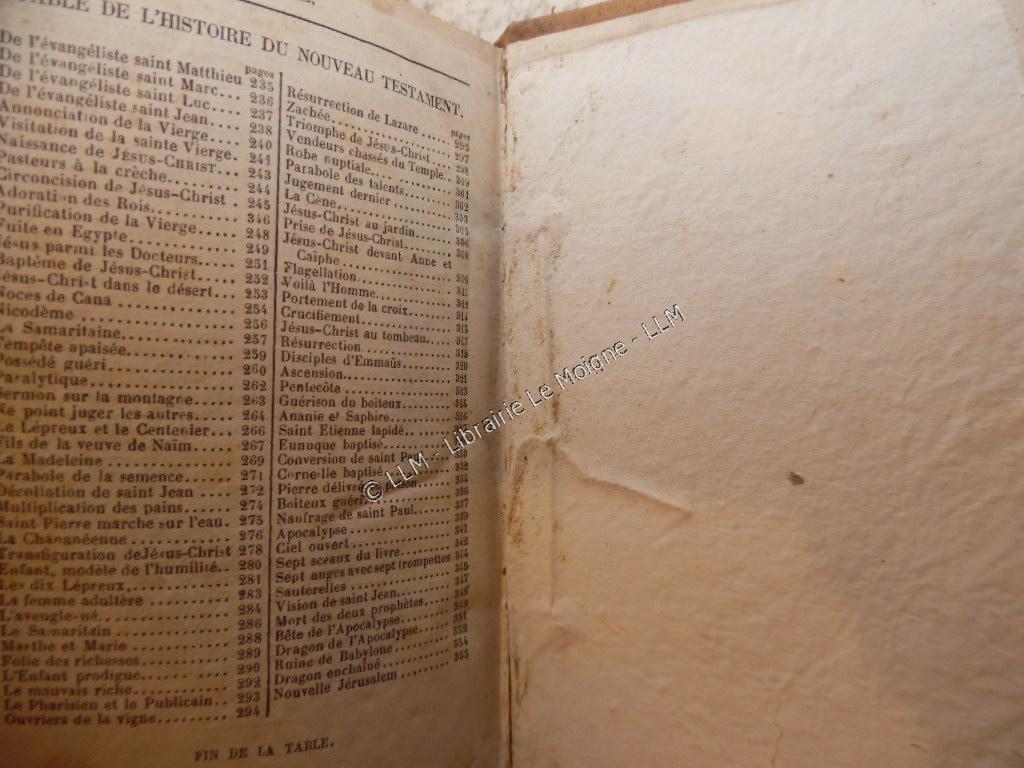 TABLE DE L'HISTOIRE DU NOUVEAU TESTAMENT.
pages
De l'évangéliste saint Matthieu 235
De l'évangéliste saint Marc... 236
De l'évangéliste saint Luc.... 237
De l'évangéliste saint Jean.... 238
Annonciation de la Vierge.... 240
Visitation de la sainte Vierge. 241
Naissance de JÉSUS-CHRIST... 243
Pasteurs à la crèche......... 244
Circoncision de Jésus-Christ . 245
Adoration des Rois.......... 346
Purification de la Vierge..... 248
Fuite en Egypte............ 249
Jésus parmi les Docteurs..... 251
Baptême de Jésus-Christ..... 252
Jésus-Christ dans le désert... 253
Noces de Cana ............ 254
Nicodème ................ 256
La Samaritaine............ 257
Tempête apaisée........... 259
Possédé guéri............. 260
Paralytique .............. 262
Sermon sur la montagne..... 263
Ne point juger les autres..... 264
Le Lépreux et le Centenier... 266
Fils de la veuve de Naïm.... 267
La Madeleine ............. 269
Parabole de la semence...... 271
Décollation de saint Jean .... 272
Multiplication des pains..... 274
Saint Pierre marche sur l'eau. 275
La Chananéenne .......... 276
Transfiguration deJésus-Christ 278
Enfant, modèle de l'humilité.. 280
Les dix Lépreux,........... 281
La femme adultère ......... 283
L'aveugle-né.............. 284
Le Samaritain ............ 286
Marthe et Marie .......... 288
Folie des richesses.......... 289
L'Enfant prodigue.......... 290
Le mauvais riche.......... 292
Le Pharisien et le Publicain.. 293
Ouvriers de la vigne........ 294
pages
Résurrection de Lazare ..... 295
Zachée................. 297
Triomphe de Jésus-Christ.... 298
Vendeurs chassés du Temple..
Robe nuptiale............ 301
Parabole des talents........ 302
Jugement dernier ......... 303
La Cène................ 305
Jésus-Christ au jardin...... 306
Prise de Jésus-Christ....... 308
Jésus-Christ devant Anne et
Caïphe ................
Flagellation............. 311
Voilà l'Homme...........
Portement de la croix...... 314
Crucifiement............ 315
Jésus-Christ au tombeau.... 317
Résurrection ............ 318
Disciples d'Emmaüs....... 320
Ascension.............. 321
Pentecôte .............. 323
Guérison du boiteux....... 324
Ananie et Saphire......... 326
Saint Etienne lapidé.......
Eunuque baptisé.........
Conversion de saint Paul... 330
Cornelle baptisé......... 332
Pierre délivré 334
Boiteux guéri 336
Naufrage de saint Paul..... 337
Apocalypse ............ 339
Ciel ouvert............. 341
Sept sceaux du livre....... 342
Sept anges avec sept trompettes 344
Sauterelles ............. 345
Vision de saint Jean....... 347
Mort des deux prophètes.... 348
Bête de l'Apocalypse...... 349
Dragon de l'Apocalypse.... 351
Ruine de Babylone ....... 352
Dragon enchaîné ........ 354
Nouvelle Jérusalem ...... 355
FIN DE LA TABLE.
© LLM - Librairie Le Moigne - LLM